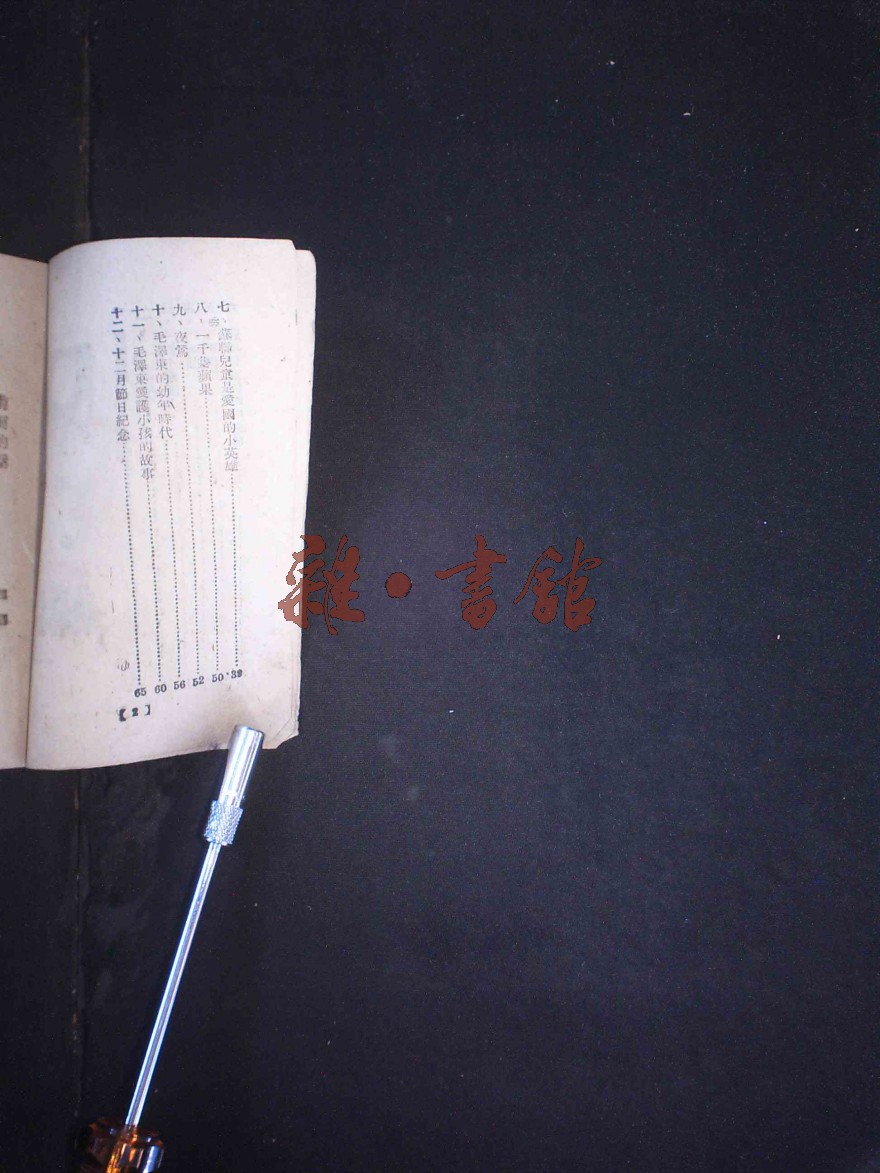 七、蘇聯兒童是愛國的小英雄……39
八、一千雙蘋果……50
九、夜鶯……52
十、毛澤東的幼年時代……56
十一、毛澤東愛護小孩的故事……60
十二、十二月節日紀念……65
【2】
雜·書館